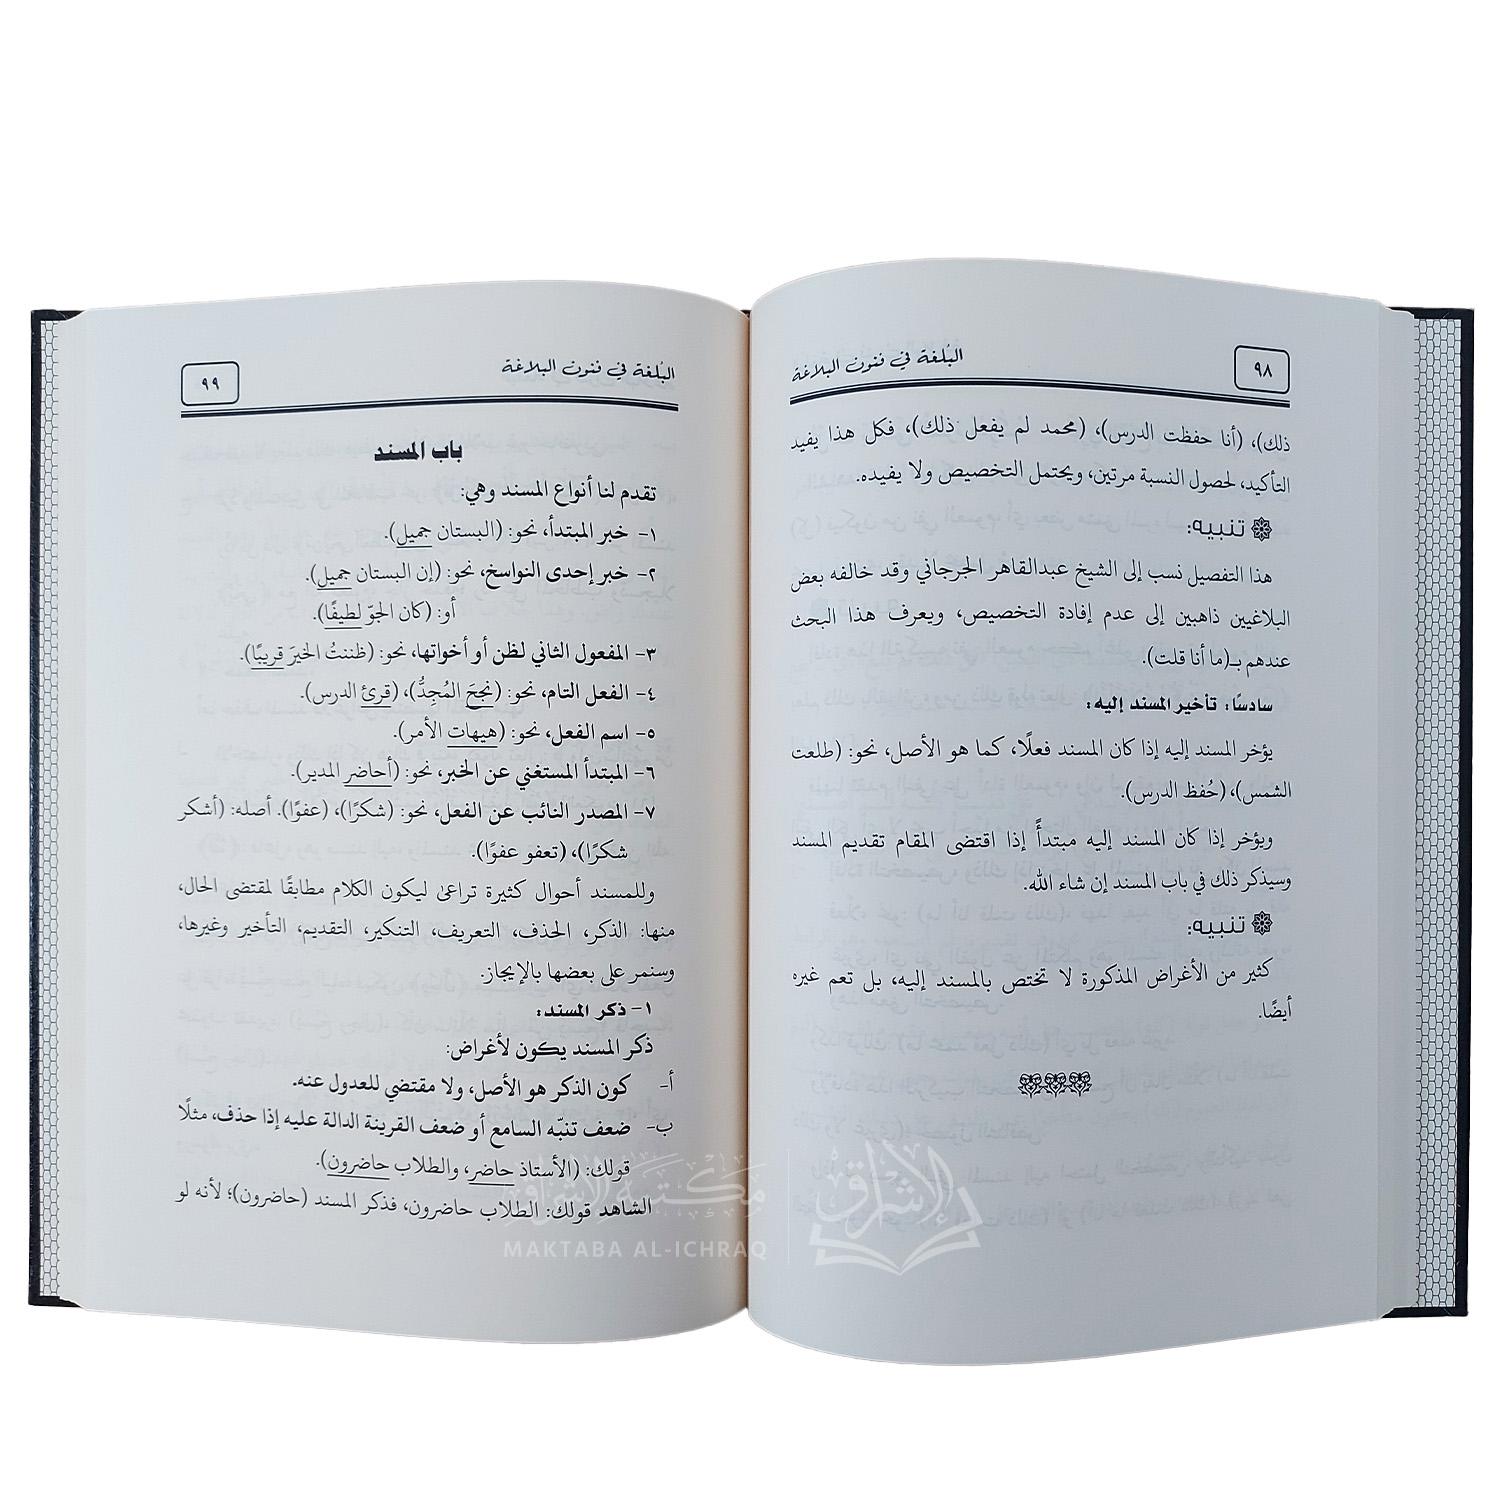 ٩٨
البُلغة في فنون البلاغة
ذلك)، (أنا حفظت الدرس)، (محمد لم يفعل ذلك)، فكل هذا يفيد
التأكيد، لحصول النسبة مرتين، ويحتمل التخصيص ولا يفيده.
تنبيه:
هذا التفصيل نسب إلى الشيخ عبدالقاهر الجرجاني وقد خالفه بعض
البلاغيين ذاهبين إلى عدم إفادة التخصيص، ويعرف هذا البحث
عندهم بـ(ما أنا قلت).
سادسًا: تأخير المسند إليه:
يؤخر المسند إليه إذا كان المسند فعلًا، كما هو الأصل، نحو: (طلعت
الشمس)، (حُفظ الدرس).
ويؤخر إذا كان المسند إليه مبتدأً إذا اقتضى المقام تقديم المسند
وسيذكر ذلك في باب المسند إن شاء الله.
تنبيه:
كثير من الأغراض المذكورة لا تختص بالمسند إليه، بل تعم غيره
أيضًا.
البُلغة في فنون البلاغة
٩٩
باب المسند
تقدم لنا أنواع المسند وهي:
١- خبر المبتدأ، نحو: (البستان جميل).
٢- خبر إحدى النواسخ، نحو: (إن البستان جميل).
أو: (كان الجوّ لطيفًا).
٣- المفعول الثاني لظن أو أخواتها، نحو: (ظننتُ الخيرَ قريبًا).
٤- الفعل التام، نحو: (نجحَ المُجِدُّ)، (قرئ الدرس).
٥- اسم الفعل، نحو: (هيهات الأمر).
٦- المبتدأ المستغني عن الخبر، نحو: (أحاضر المدير).
٧- المصدر النائب عن الفعل، نحو: (شكرًا)، (عفوًا). أصله: (أشكر
شكرًا)، (تعفو عفوًا).
وللمسند أحوال كثيرة تراعى ليكون الكلام مطابقًا لمقتضى الحال،
منها: الذكر، الحذف، التعريف، التنكير، التقديم، التأخير وغيرها،
وسنمر على بعضها بالإيجاز.
١- ذكر المسند:
ذكر المسند يكون لأغراض:
أ- كون الذكر هو الأصل، ولا مقتضي للعدول عنه.
ب- ضعف تنبّه السامع أو ضعف القرينة الدالة عليه إذا حذف، مثلًا
قولك: (الأستاذ حاضر، والطلاب حاضرون).
الشاهد قولك: الطلاب حاضرون، فذكر المسند (حاضرون)؛ لأنه لو
مكتبة الإشراق
MAKTABA AL-ICHRAQ
الإشراق